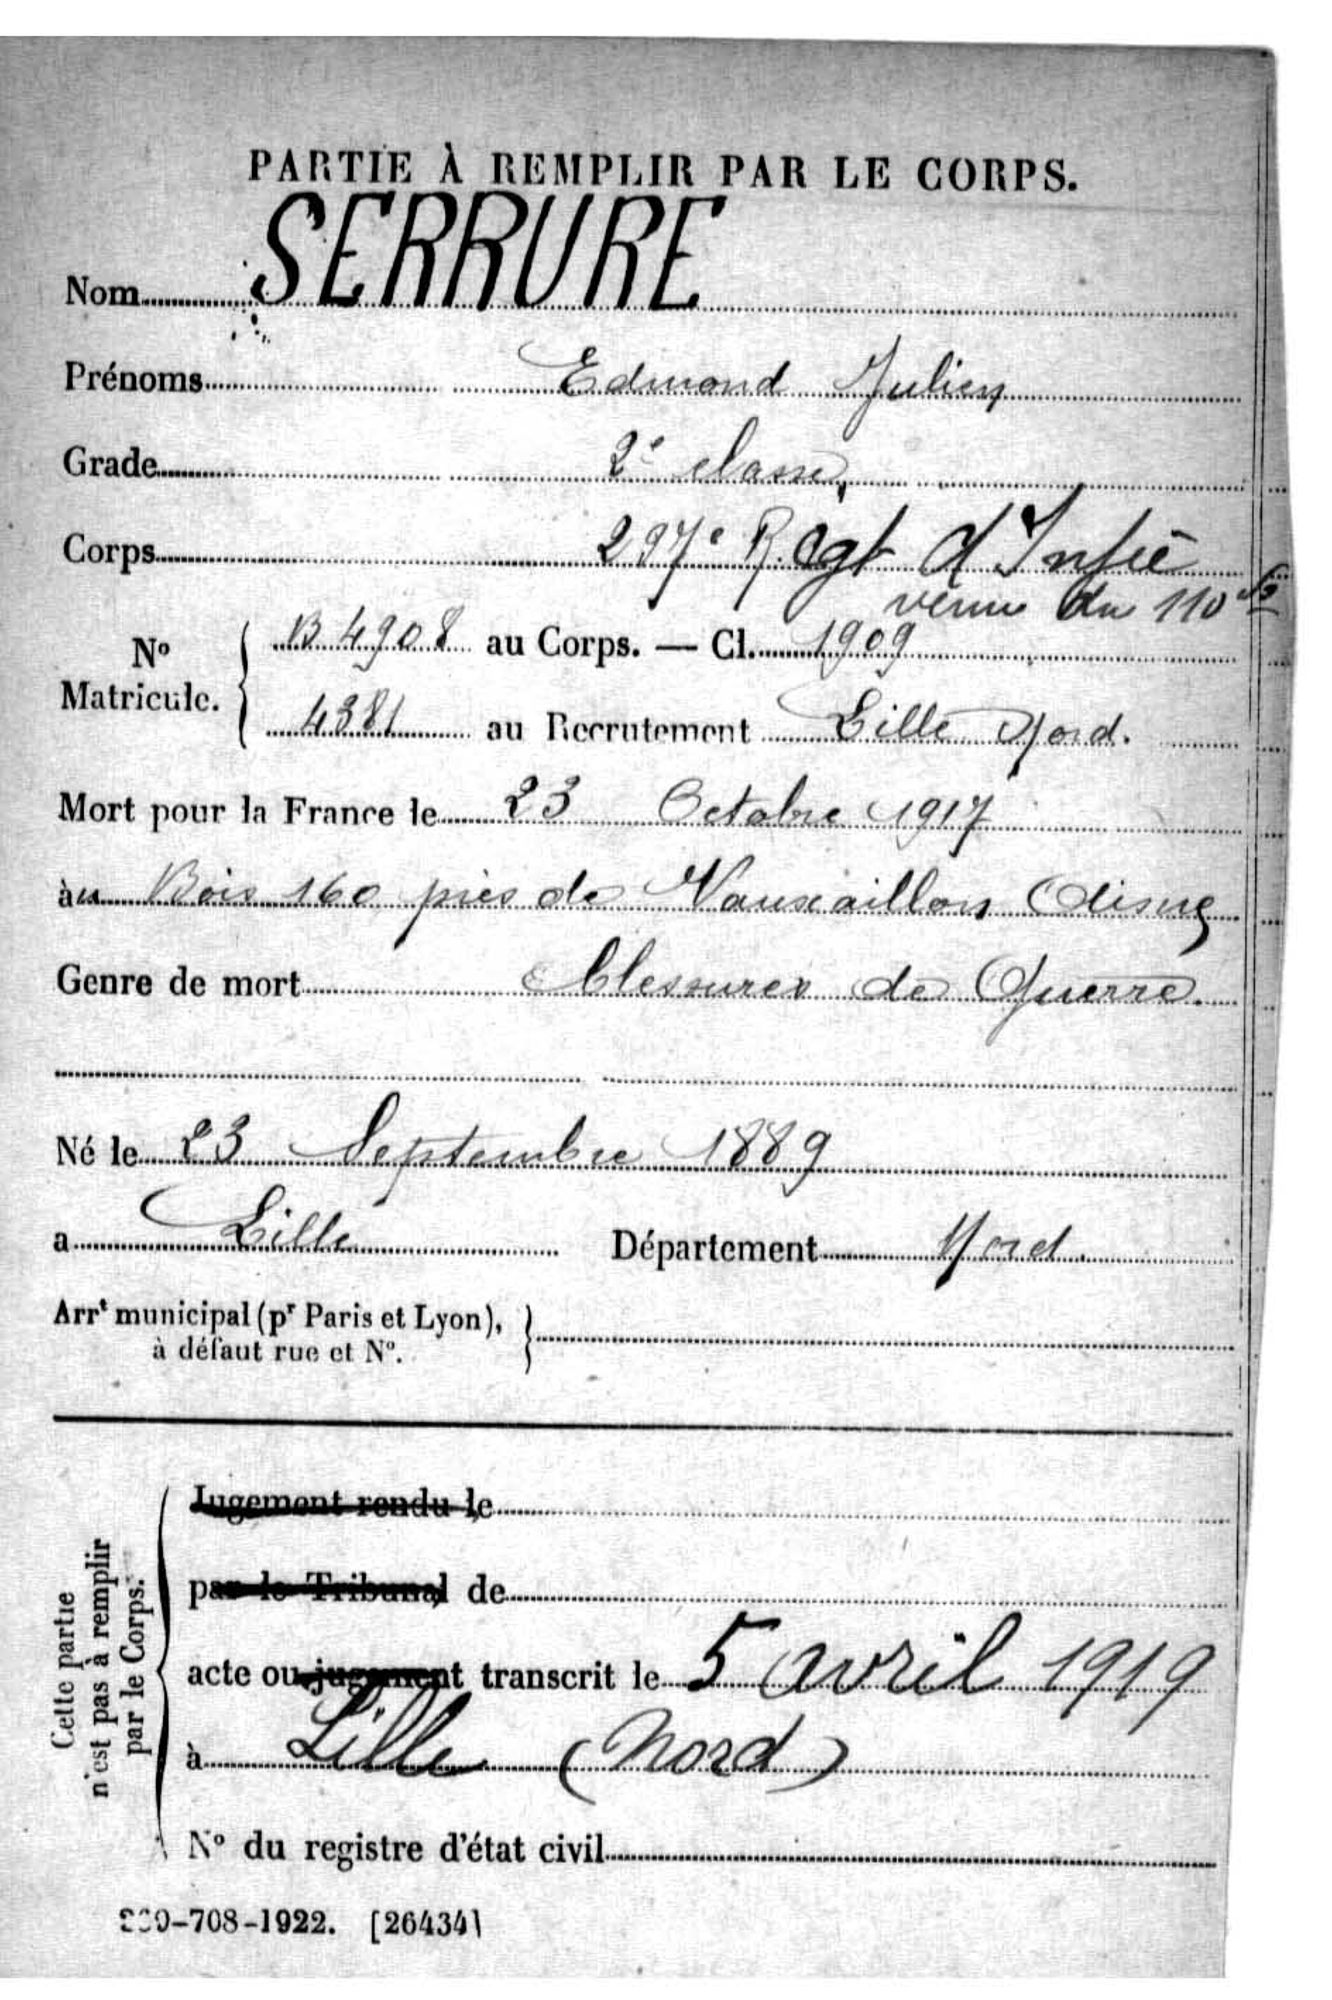 PARTIE À REMPLIR PAR LE CORPS.
Nom SERRURE
Prénoms Edmond Julien
Grade 2e classe,
Corps 297e R. Regt d'Infie
venu du 110
No Matricule. B 4908 au Corps. — Cl. 1909
4381 au Recrutement Lille Nord.
Mort pour la France le 23 Octobre 1917
àu Bois 160 près de Vauxaillon Aisne
Genre de mort Blessures de Guerre.
Né le 23 Septembre 1889
a Lille Département Nord.
Arrt municipal (pr Paris et Lyon),
à défaut rue et No.
Cette partie
n'est pas à remplir
par le Corps.
Jugement rendu le
par le Tribunal de
acte ou jugement transcrit le 5 avril 1919
à Lille (Nord)
No du registre d'état civil
-708-1922. [26434]